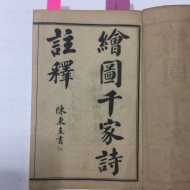 繪圖千家詩
註釋
陳東末書